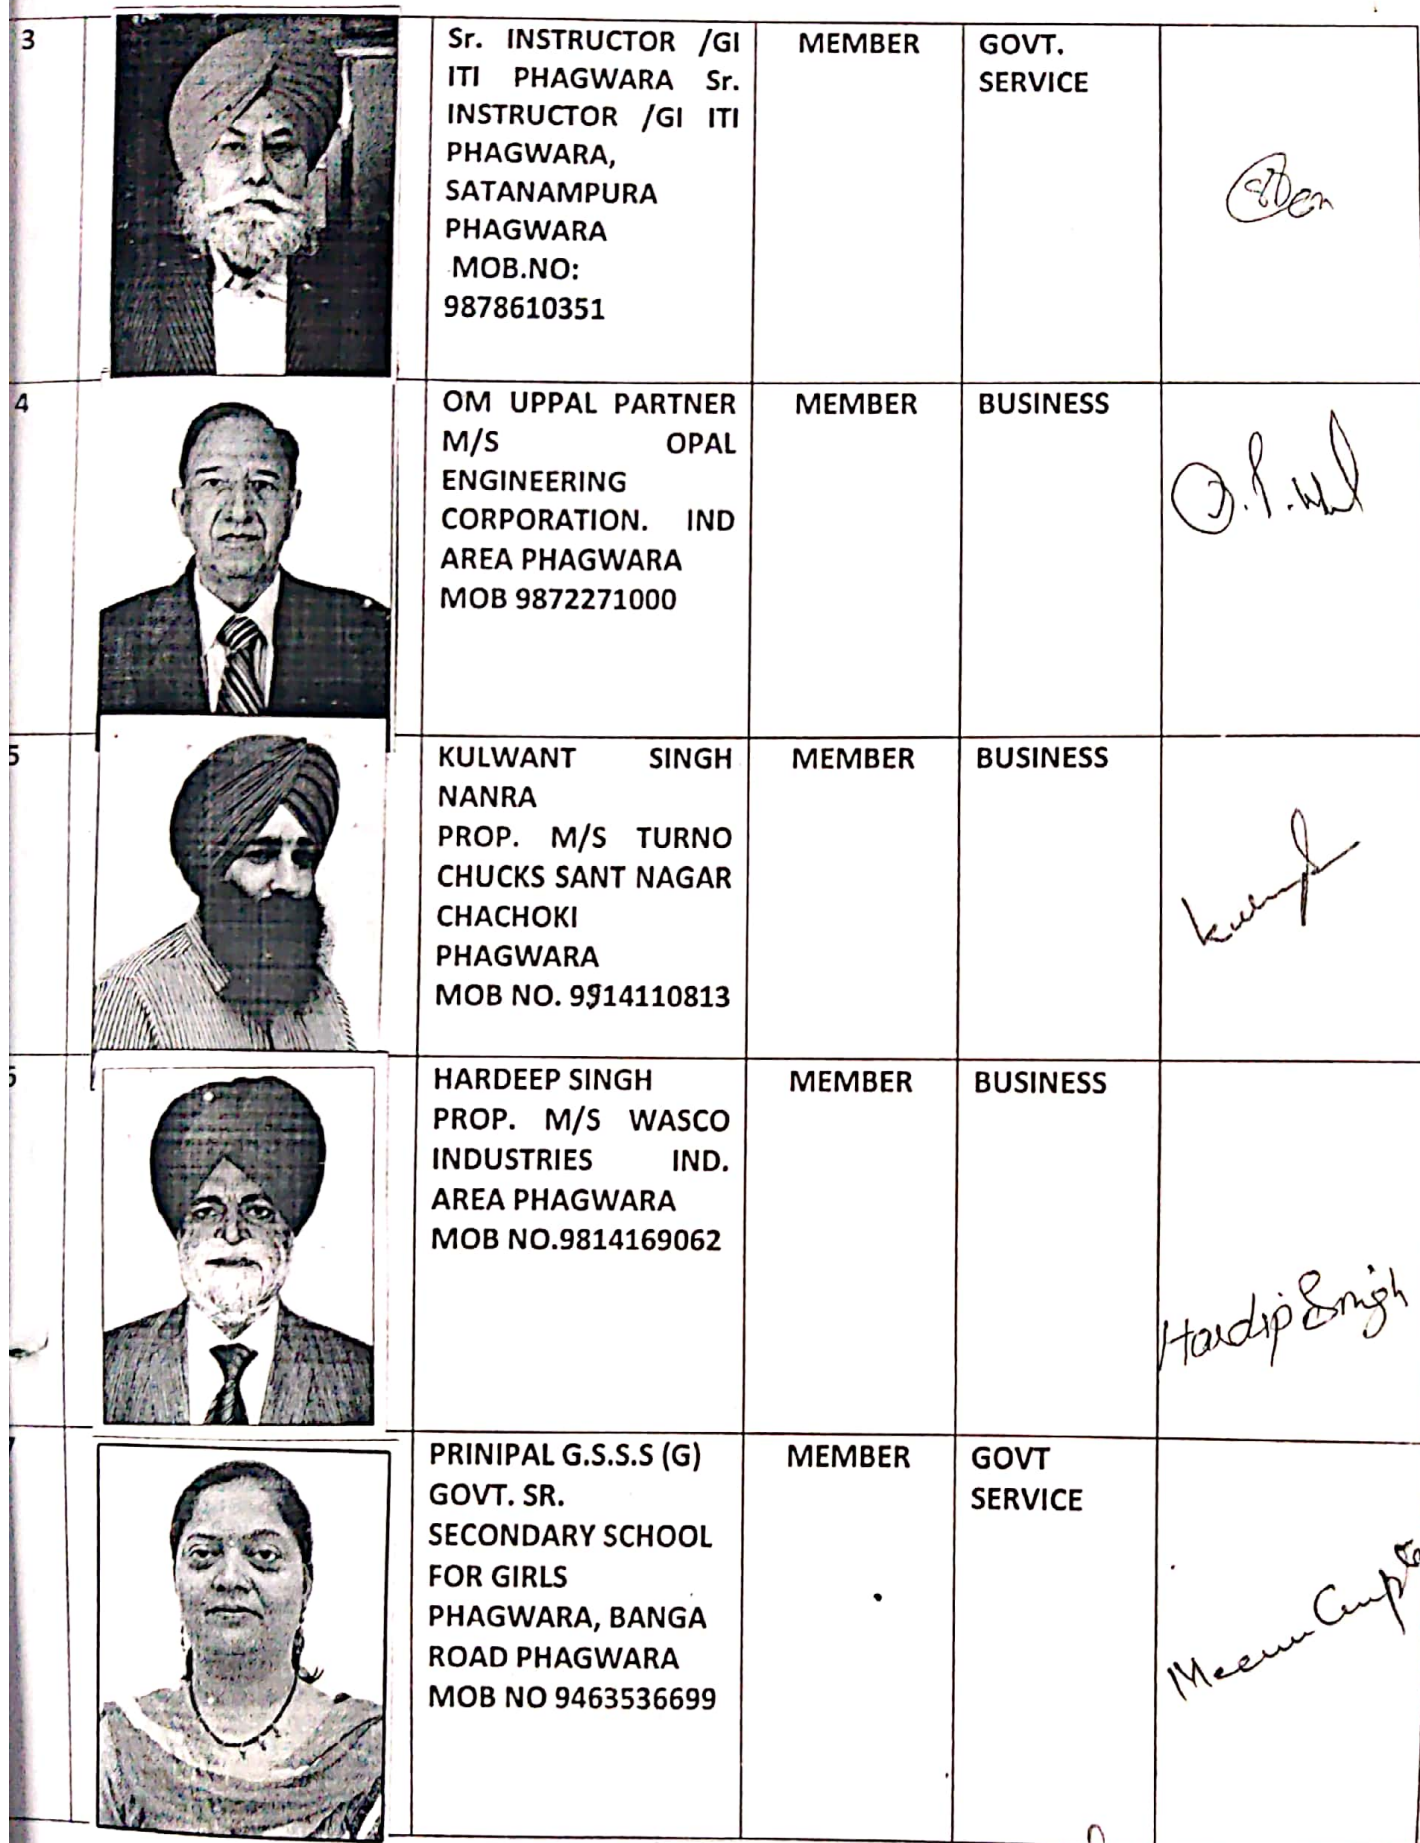 3
Sr. INSTRUCTOR /GI
ITI PHAGWARA Sr.
INSTRUCTOR /GI ITI
PHAGWARA,
SATANAMPURA
PHAGWARA
MOB.NO:
9878610351
MEMBER
GOVT.
SERVICE
4
OM UPPAL PARTNER
M/S OPAL
ENGINEERING
CORPORATION. IND
AREA PHAGWARA
MOB 9872271000
MEMBER
BUSINESS
5
KULWANT SINGH
NANRA
PROP. M/S TURNO
CHUCKS SANT NAGAR
CHACHOKI
PHAGWARA
MOB NO. 9914110813
MEMBER
BUSINESS
HARDEEP SINGH
PROP. M/S WASCO
INDUSTRIES IND.
AREA PHAGWARA
MOB NO.9814169062
MEMBER
BUSINESS
Hardip Singh
PRINIPAL G.S.S.S (G)
GOVT. SR.
SECONDARY SCHOOL
FOR GIRLS
PHAGWARA, BANGA
ROAD PHAGWARA
MOB NO 9463536699
MEMBER
GOVT
SERVICE